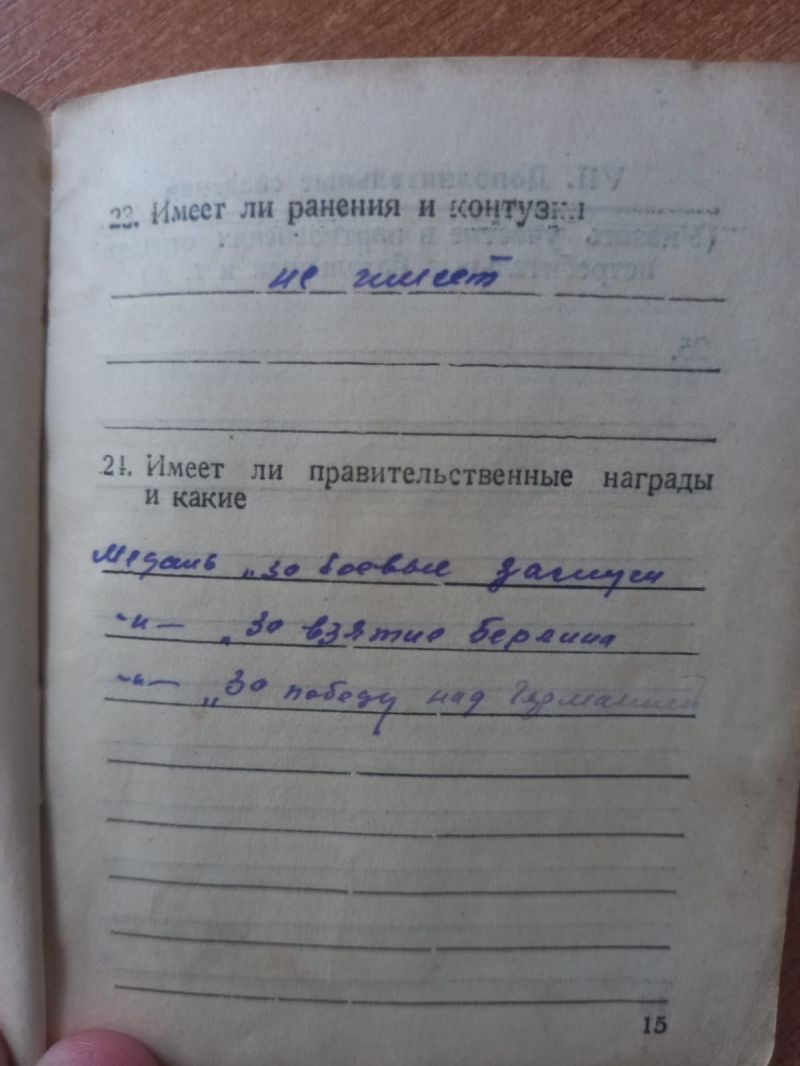 23. Имеет ли ранения и контузии
не имеет
24. Имеет ли правительственные награды
и какие
Медаль „За боевые заслуги
-"- „За взятие Берлина
-"- „За победу над Германией
15